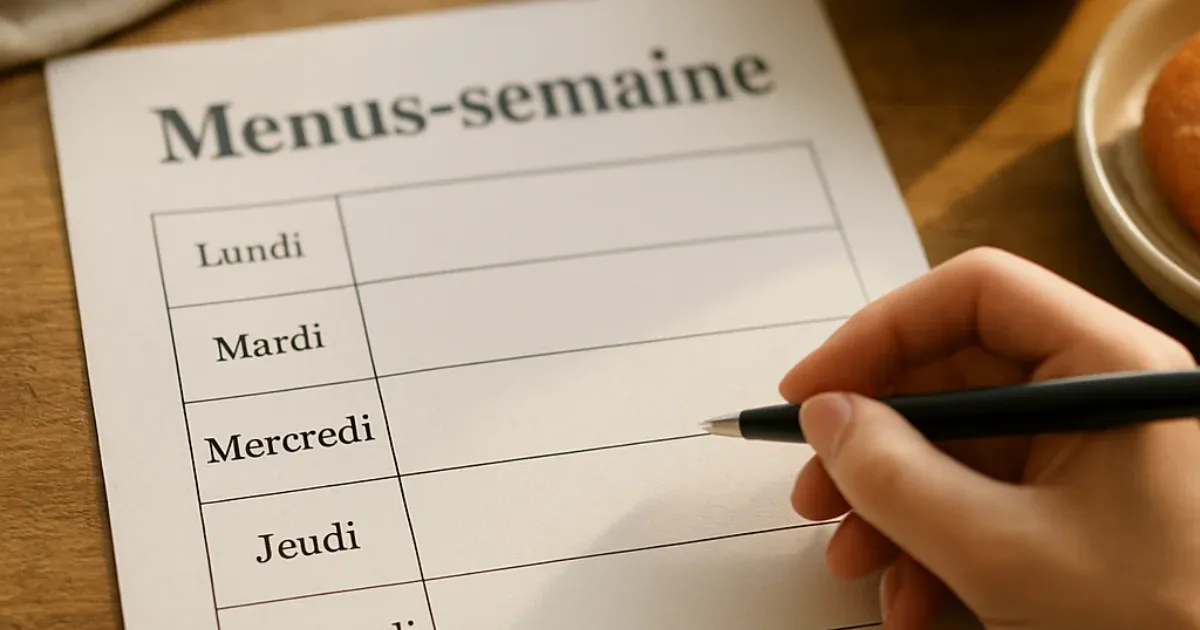 Menus-semaine
Lundi
Mardi
Mercredi
Jeudi